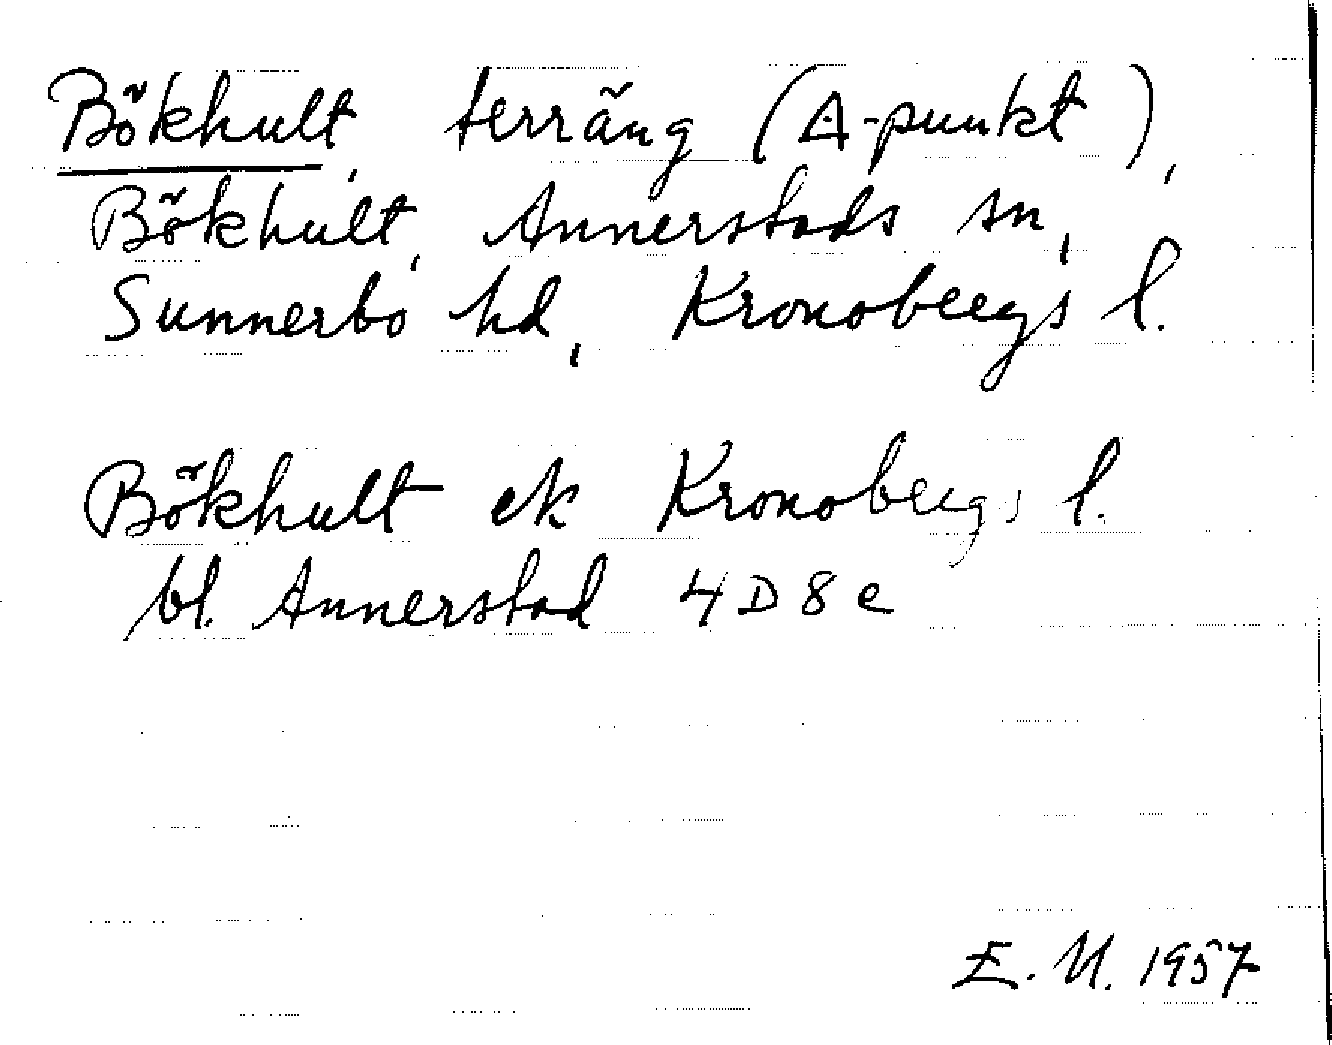 Bökhult, terräng (△-punkt),
Bökhult, Annerstads sn,
Sunnerbo hd, Kronobergs l.
Bökhult ek Kronobergs l.
bl. Annerstad 4D8e
E. U. 1957